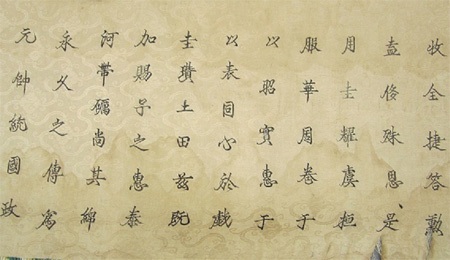 收全捷答勳
盍侈殊恩是
用圭耀虞桓
服華周卷于
以昭實惠于
以表同心於戲
圭瓚土田兹既
加賜予之惠泰
河帶礪尚其綿
永久之傳爲
元帥統國政